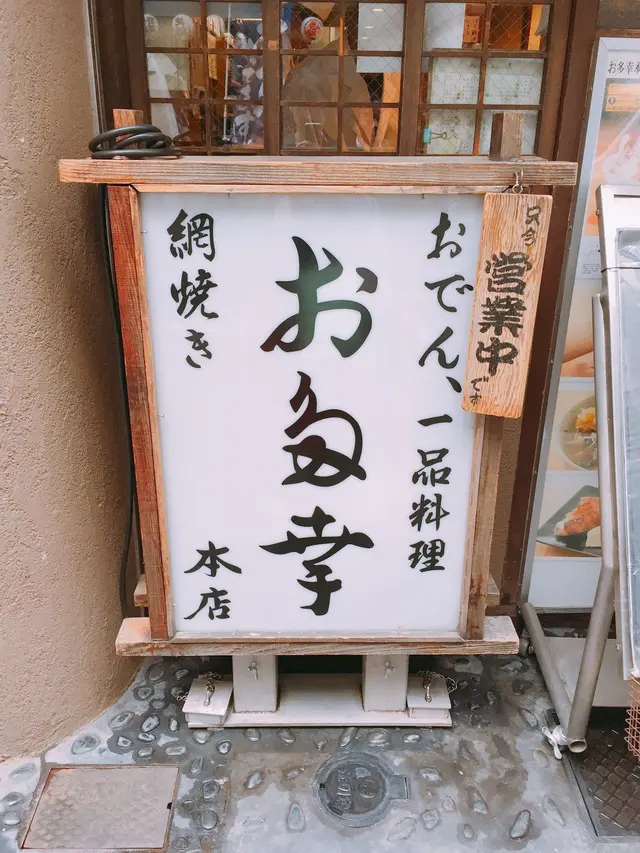 おでん、一品料理
お多幸
網焼き
本店
只今
営業中
です
お多幸本